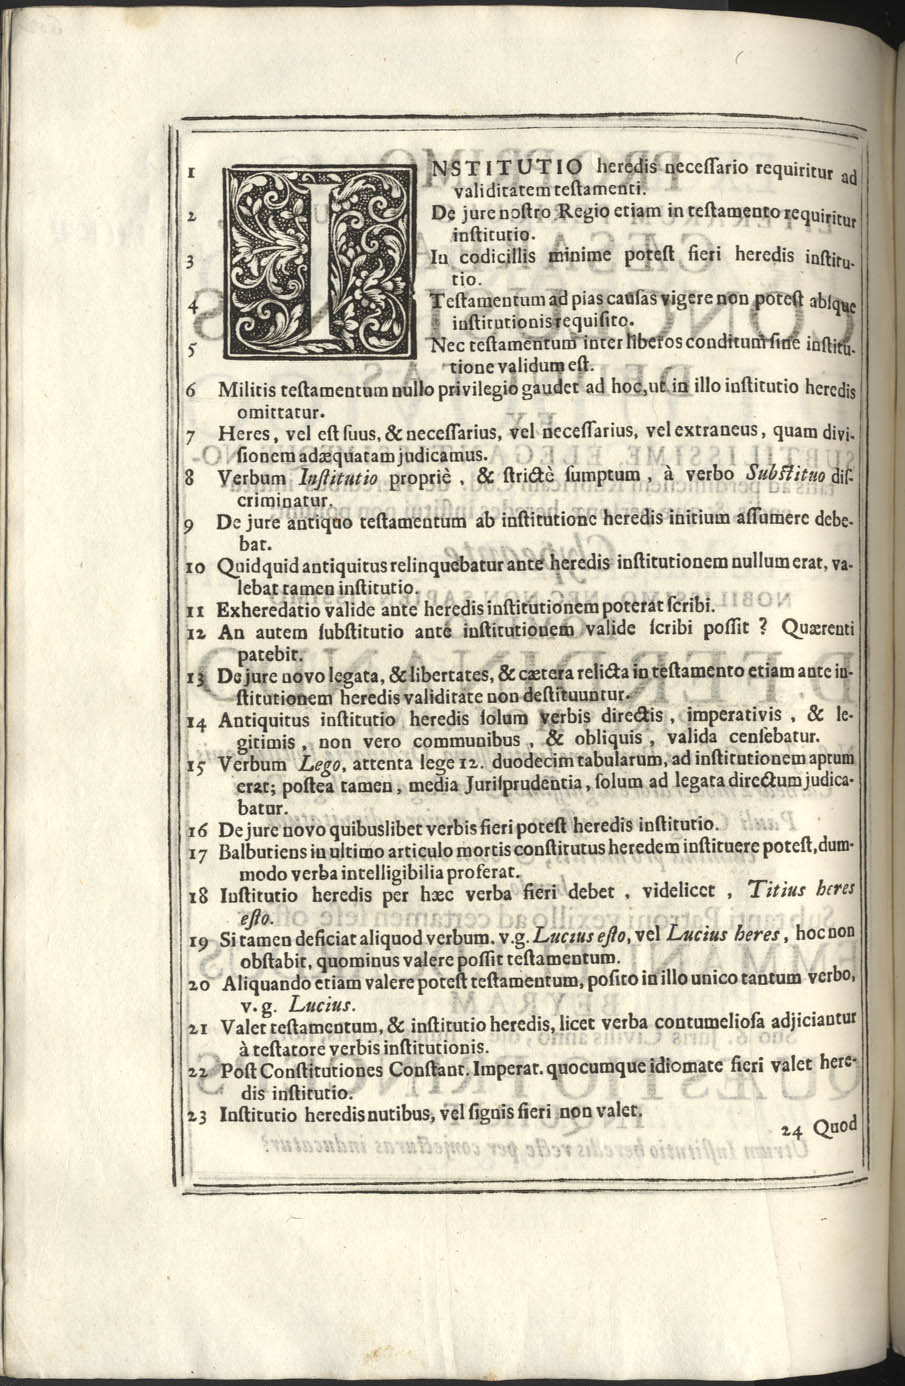 1 INSTITUTIO heredis necessario requiritur ad
validitatem testamenti.
2 De jure nostro Regio etiam in testamento requiritur
institutio.
3 In codicillis minime potest fieri heredis institu-
tio.
4 Testamentum ad pias causas vigere non potest absque
institutionis requisito.
5 Nec testamentum inter liberos conditum sine institu-
tione validum est.
6 Militis testamentum nullo privilegio gaudet ad hoc, ut in illo institutio heredis
omittatur.
7 Heres, vel est suus, & necessarius, vel necessarius, vel extraneus, quam divi-
sionem adæquatam judicamus.
8 Verbum Institutio propriè, & strictè sumptum, à verbo Substituo dis-
criminatur.
9 De jure antiquo testamentum ab institutione heredis initium assumere debe-
bat.
10 Quidquid antiquitus relinquebatur ante heredis institutionem nullum erat, va-
lebat tamen institutio.
11 Exheredatio valide ante heredis institutionem poterat scribi.
12 An autem substitutio ante institutionem valide scribi possit? Quærenti
patebit.
13 De jure novo legata, & libertates, & cætera relicta in testamento etiam ante in-
stitutionem heredis validitate non destituuntur.
14 Antiquitus institutio heredis solum verbis directis, imperativis, & le-
gitimis, non vero communibus, & obliquis, valida censebatur.
15 Verbum Lego, attenta lege 12. duodecim tabularum, ad institutionem aptum
erat; postea tamen, media Jurisprudentia, solum ad legata directum judica-
batur.
16 De jure novo quibuslibet verbis fieri potest heredis institutio.
17 Balbutiens in ultimo articulo mortis constitutus heredem instituere potest, dum-
modo verba intelligibilia proferat.
18 Institutio heredis per hæc verba fieri debet, videlicet, Titius heres
esto.
19 Si tamen deficiat aliquod verbum. v.g. Lucius esto, vel Lucius heres, hoc non
obstabit, quominus valere possit testamentum.
20 Aliquando etiam valere potest testamentum, posito in illo unico tantum verbo,
v. g. Lucius.
21 Valet testamentum, & institutio heredis, licet verba contumeliosa adjiciantur
à testatore verbis institutionis.
22 Post Constitutiones Constant. Imperat. quocumque idiomate fieri valet here-
dis institutio.
23 Institutio heredis nutibus, vel signis fieri non valet.
24 Quod